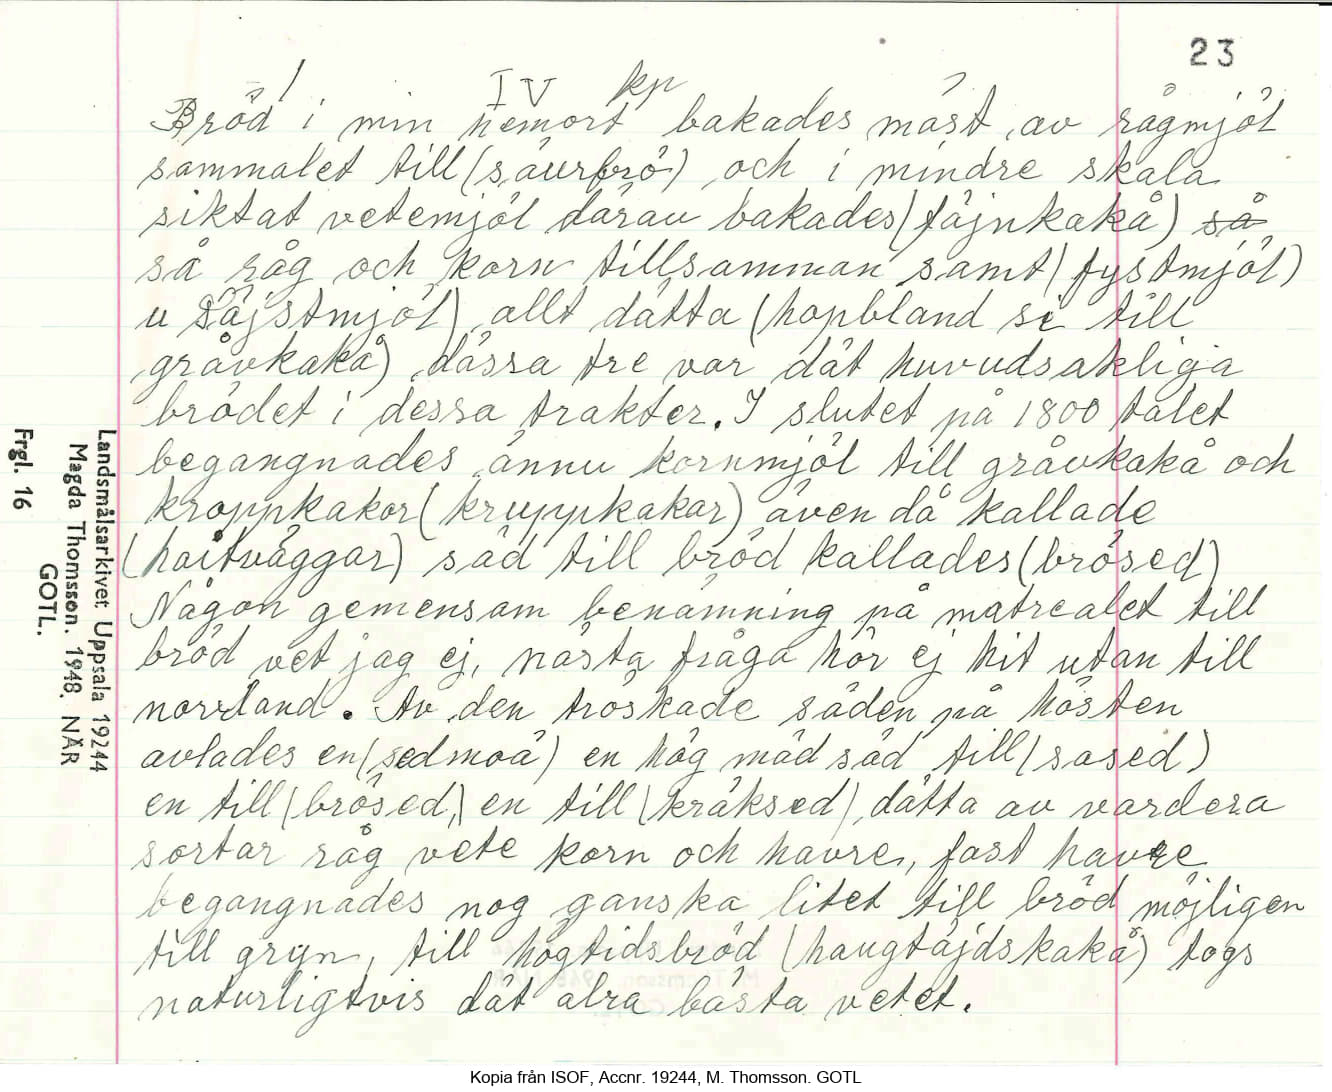 23
IV kp
Bröd i min hemort bakades mäst av rågmjöl
sammalet till (säurbrö) och i mindre skala
siktat vetemjöl därav bakades (fäjnkakå) så
så råg och korn tillsamman samt (fystmjöl)
u säjstmjöl) allt dätta (hopbland si till
gråvkakå) dässa tre var dät huvudsakliga
brödet i dessa trakter. I slutet på 1800 talet
begangnades ännu kornmjöl till gråvkakå och
kroppkakor (kruppkakar) även då kallade
(haitväggar) säd till bröd kallades (brösed)
Någon gemensam benämning på matrealet till
bröd vet jag ej, nästa fråga hör ej hit utan till
norrland. Av den tröskade säden på hösten
avlades en (sedmoå) en hög mäd säd till (sased)
en till (brösed,) en till (kräksed) dätta av vardera
sortar råg vete korn och havre, fast havre
begangnades nog ganska litet till bröd möjligen
till gryn, till högtidsbröd (haugtäjdskakå) togs
naturligtvis dät alra bästa vetet.
Landsmålsarkivet, Uppsala 19244
Magda Thomsson. 1948. NÄR
GOTL.
Frgl. 16
Kopia från ISOF, Accnr. 19244, M. Thomsson. GOTL